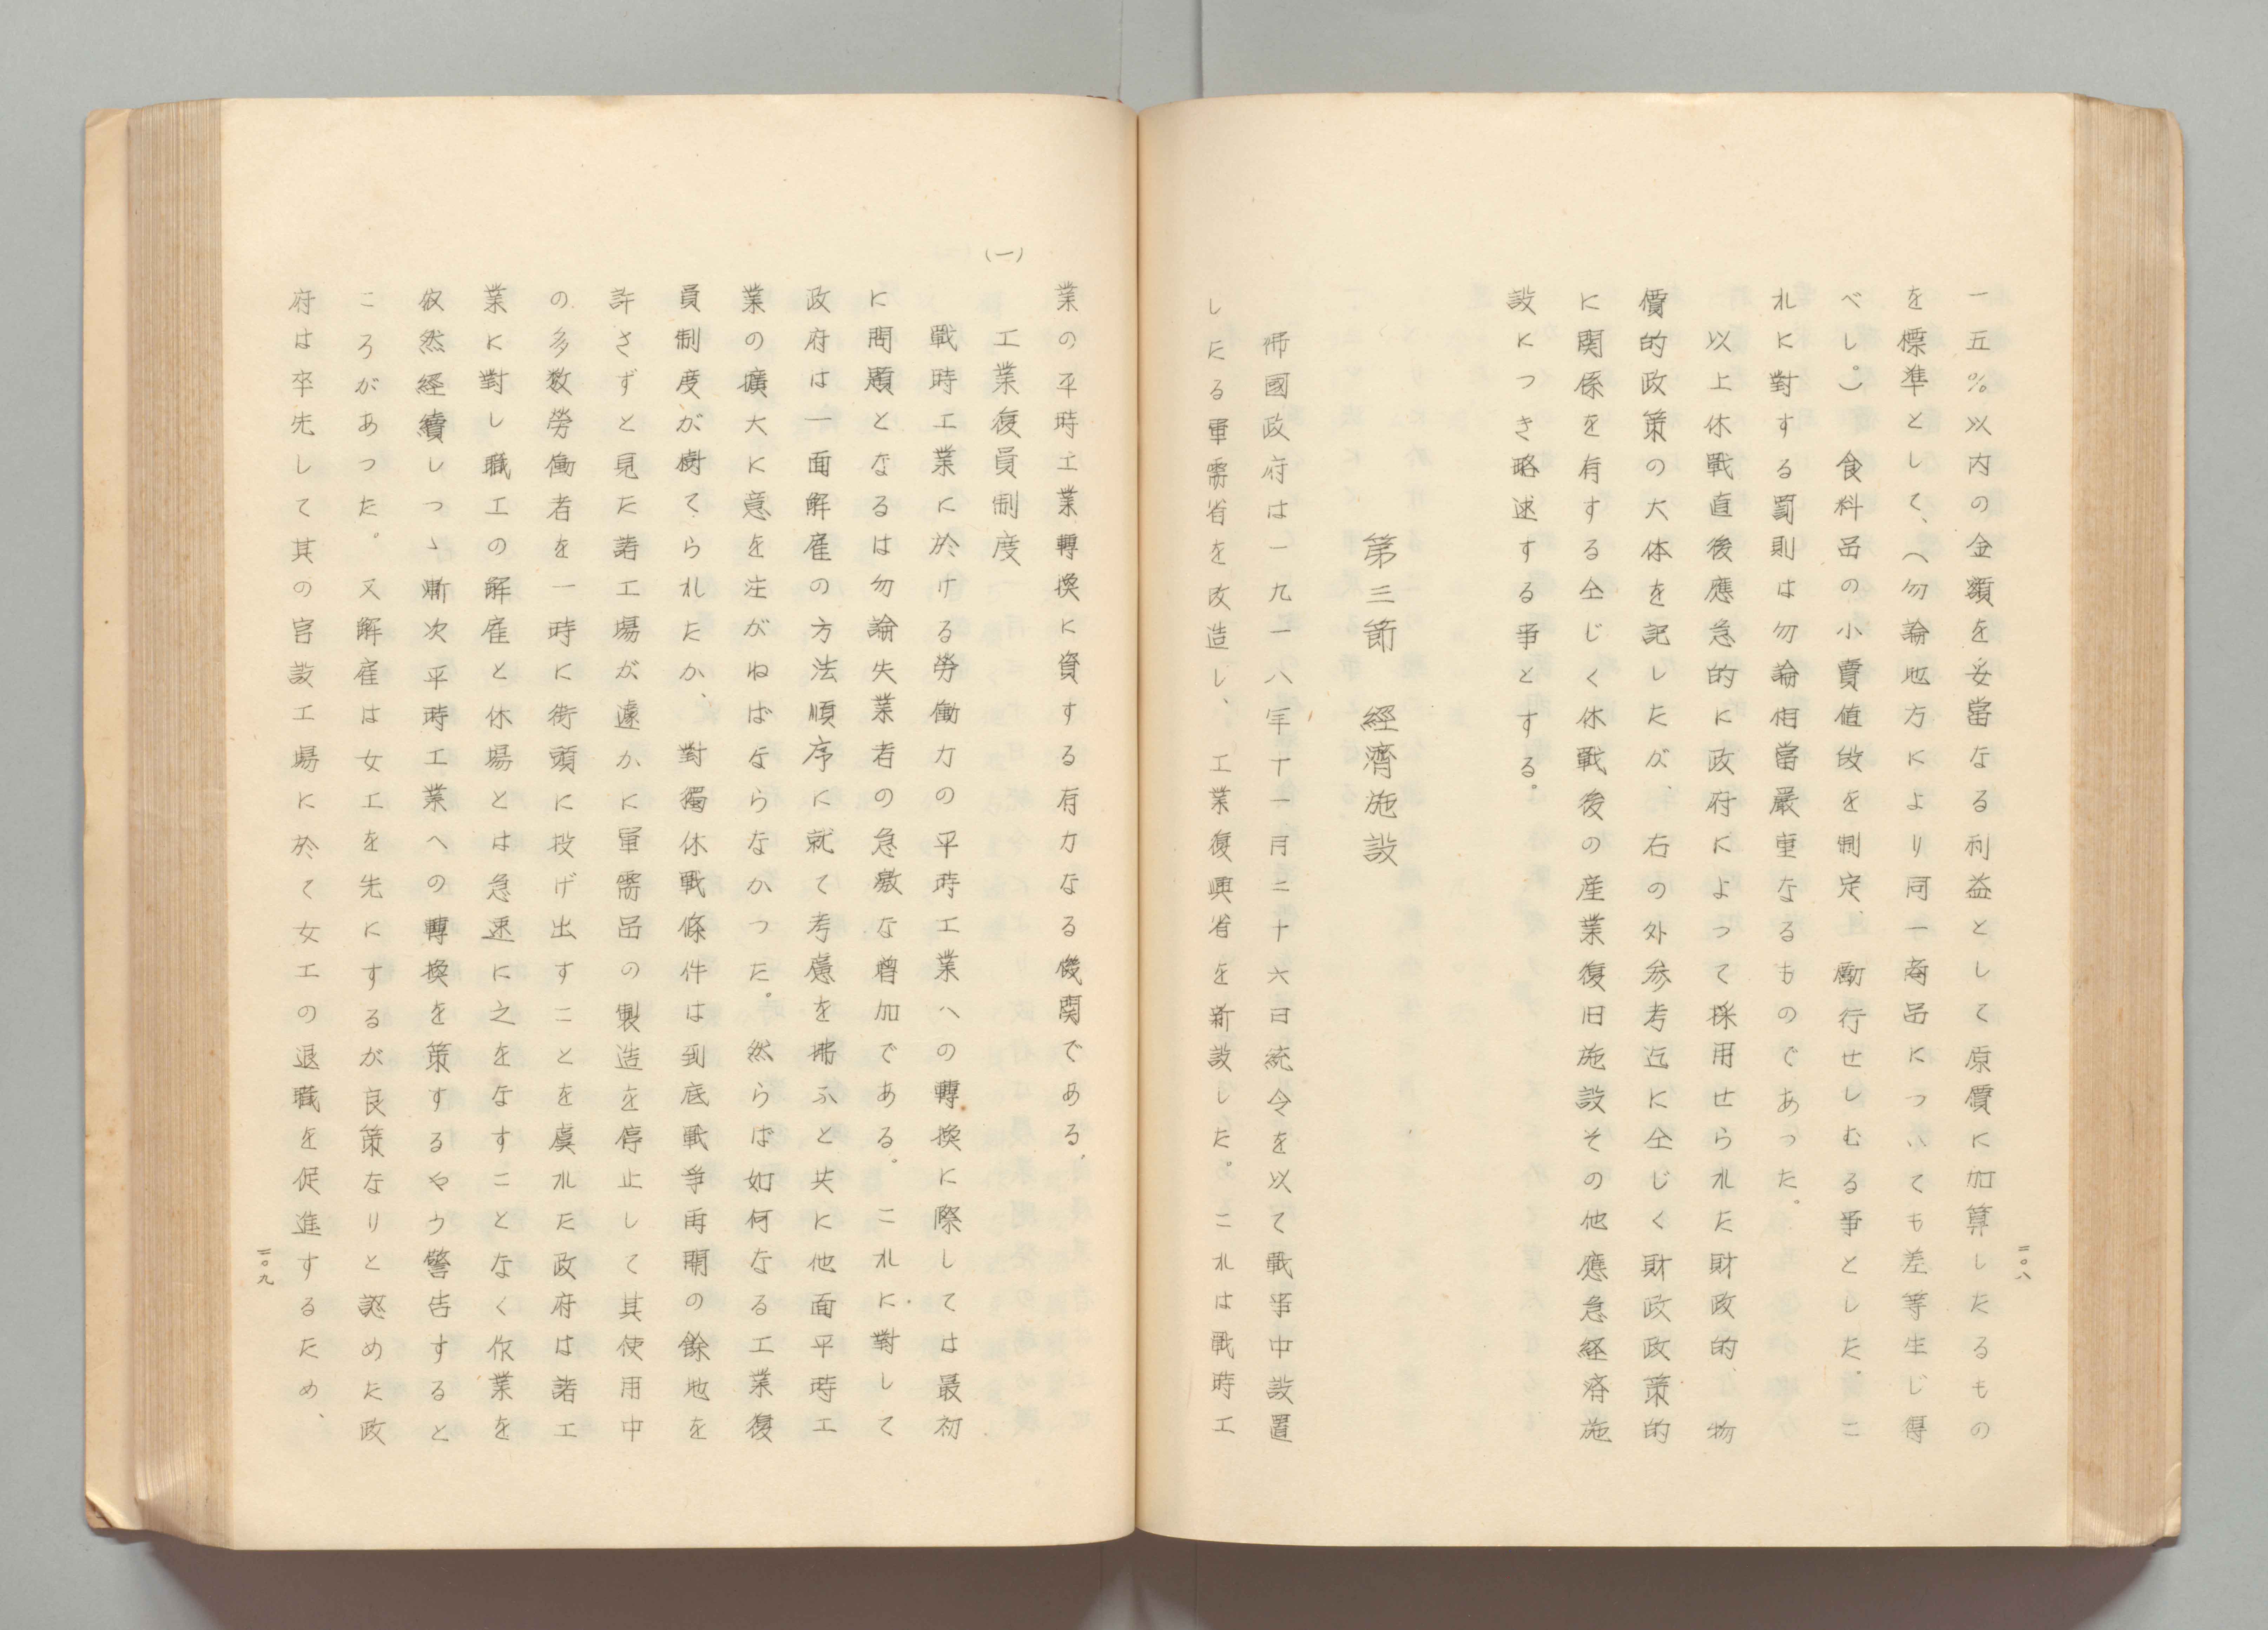 一五％以内の金額を妥當なる利益として原價に加算したるもの
を標準として、（勿論地方により同一商品についても差等生じ得
べし。）食料品の小賣値段を制定、勵行せしむる事とした。こ
れに對する罰則は勿論相當嚴重なるものであった。
以上休戰直後應急的に政府によって採用せられた財政的、物
價的政策の大体を記したが、右の外参考迄に仝じく財政政策的
に関係を有する仝じく休戰後の産業復旧施設その他應急経済施
設につき略述する事とする。
第三節　經濟施設
佛國政府は一九一八年十一月二十六日統令を以て戰爭中設置
したる軍需省を改造し、工業復興省を新設した。これは戰時工
一〇八
業の平時工業轉換に資する有力なる機関である。
(一)　工業復員制度
戰時工業に於ける勞働力の平時工業への轉換に際しては最初
に問題となるは勿論失業者の急激な増加である。これに對して
政府は一面解雇の方法順序に就て考慮を拂ふと共に他面平時工
業の擴大に意を注がねばならなかった。然らば如何なる工業復
員制度が樹てられたか、對獨休戰條件は到底戰爭再開の餘地を
許さずと見た諸工場が遽かに軍需品の製造を停止して其使用中
の多数勞働者を一時に街頭に投げ出すことを虞れた政府は諸工
業に對し職工の解雇と休場とは急速に之をなすことなく作業を
依然経續しつゝ漸次平時工業への轉換を策するやウ警告すると
ころがあった。又解雇は女工を先にするが良策なりと認めた政
府は卒先して其の官設工場に於て女工の退職を促進するため、
一〇九